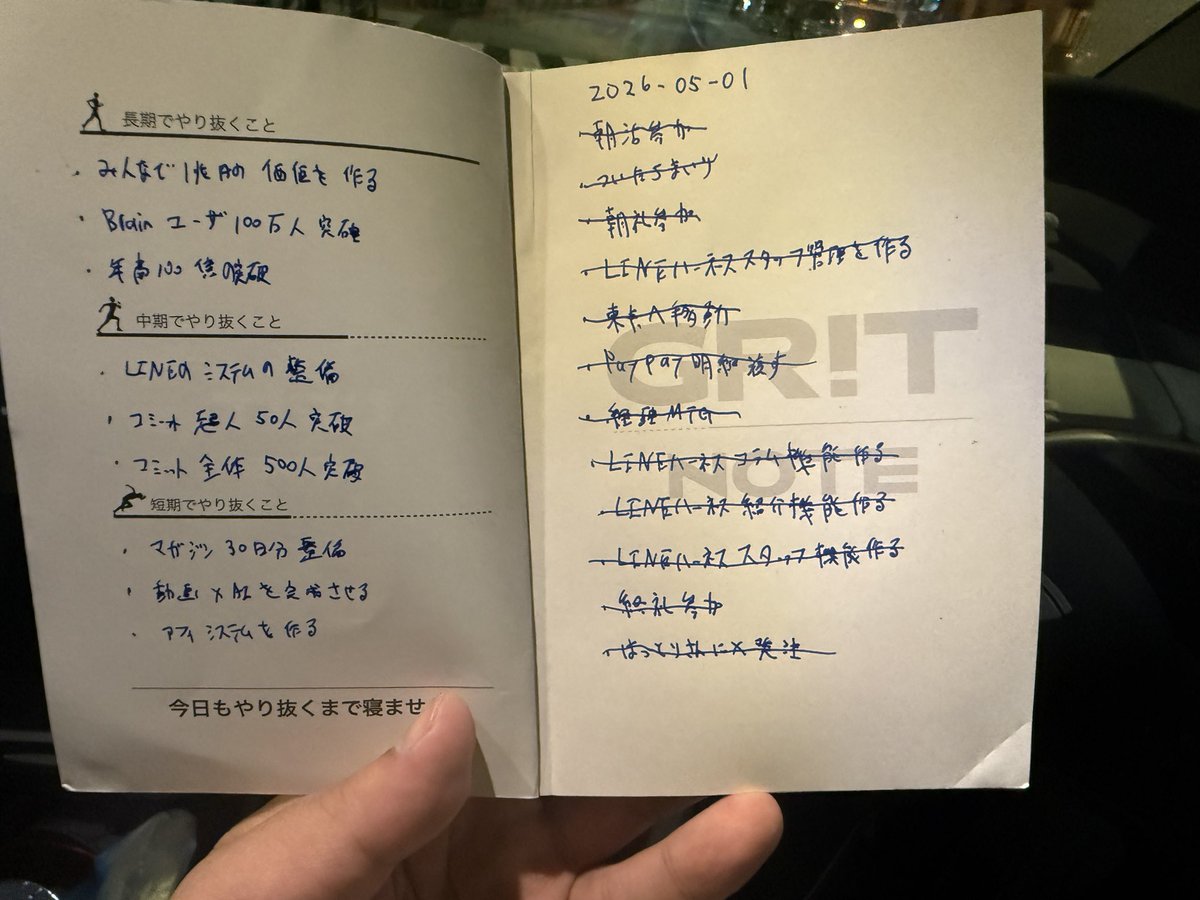 長期でやり抜くこと
・みんなで1兆円の価値を作る
・Brain ユーザ100万人突破
・年商100億の突破
中期でやり抜くこと
・LINEのシステムの整備
・コミット超人50人突破
・コミット全体500人突破
短期でやり抜くこと
・マガジン30日分整備
・動画×AIを完成させる
・アフィシステムを作る
今日もやり抜くまで寝ませ
2026-05-01
・朝活参加
・ついたちまいり
・朝礼参加
・LINEハーネススタッフ管理を作る
・東京へ移動
・PayPay明細渡す
・経験MTG
・LINEハーネスコラム機能作る
・LINEハーネス紹介機能作る
・LINEハーネススタッフ機能作る
・終礼参加
・はっとりさんにX発注
GR!T
NOTE